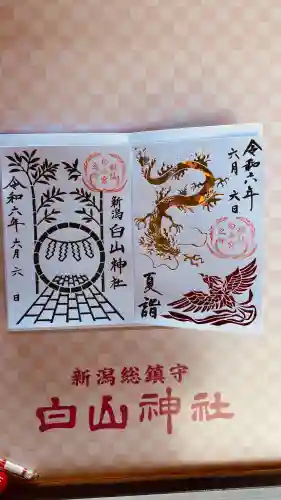 令和六年
六月六日
夏詣
新潟白山神社
令和六年六月六日
新潟総鎮守
白山神社